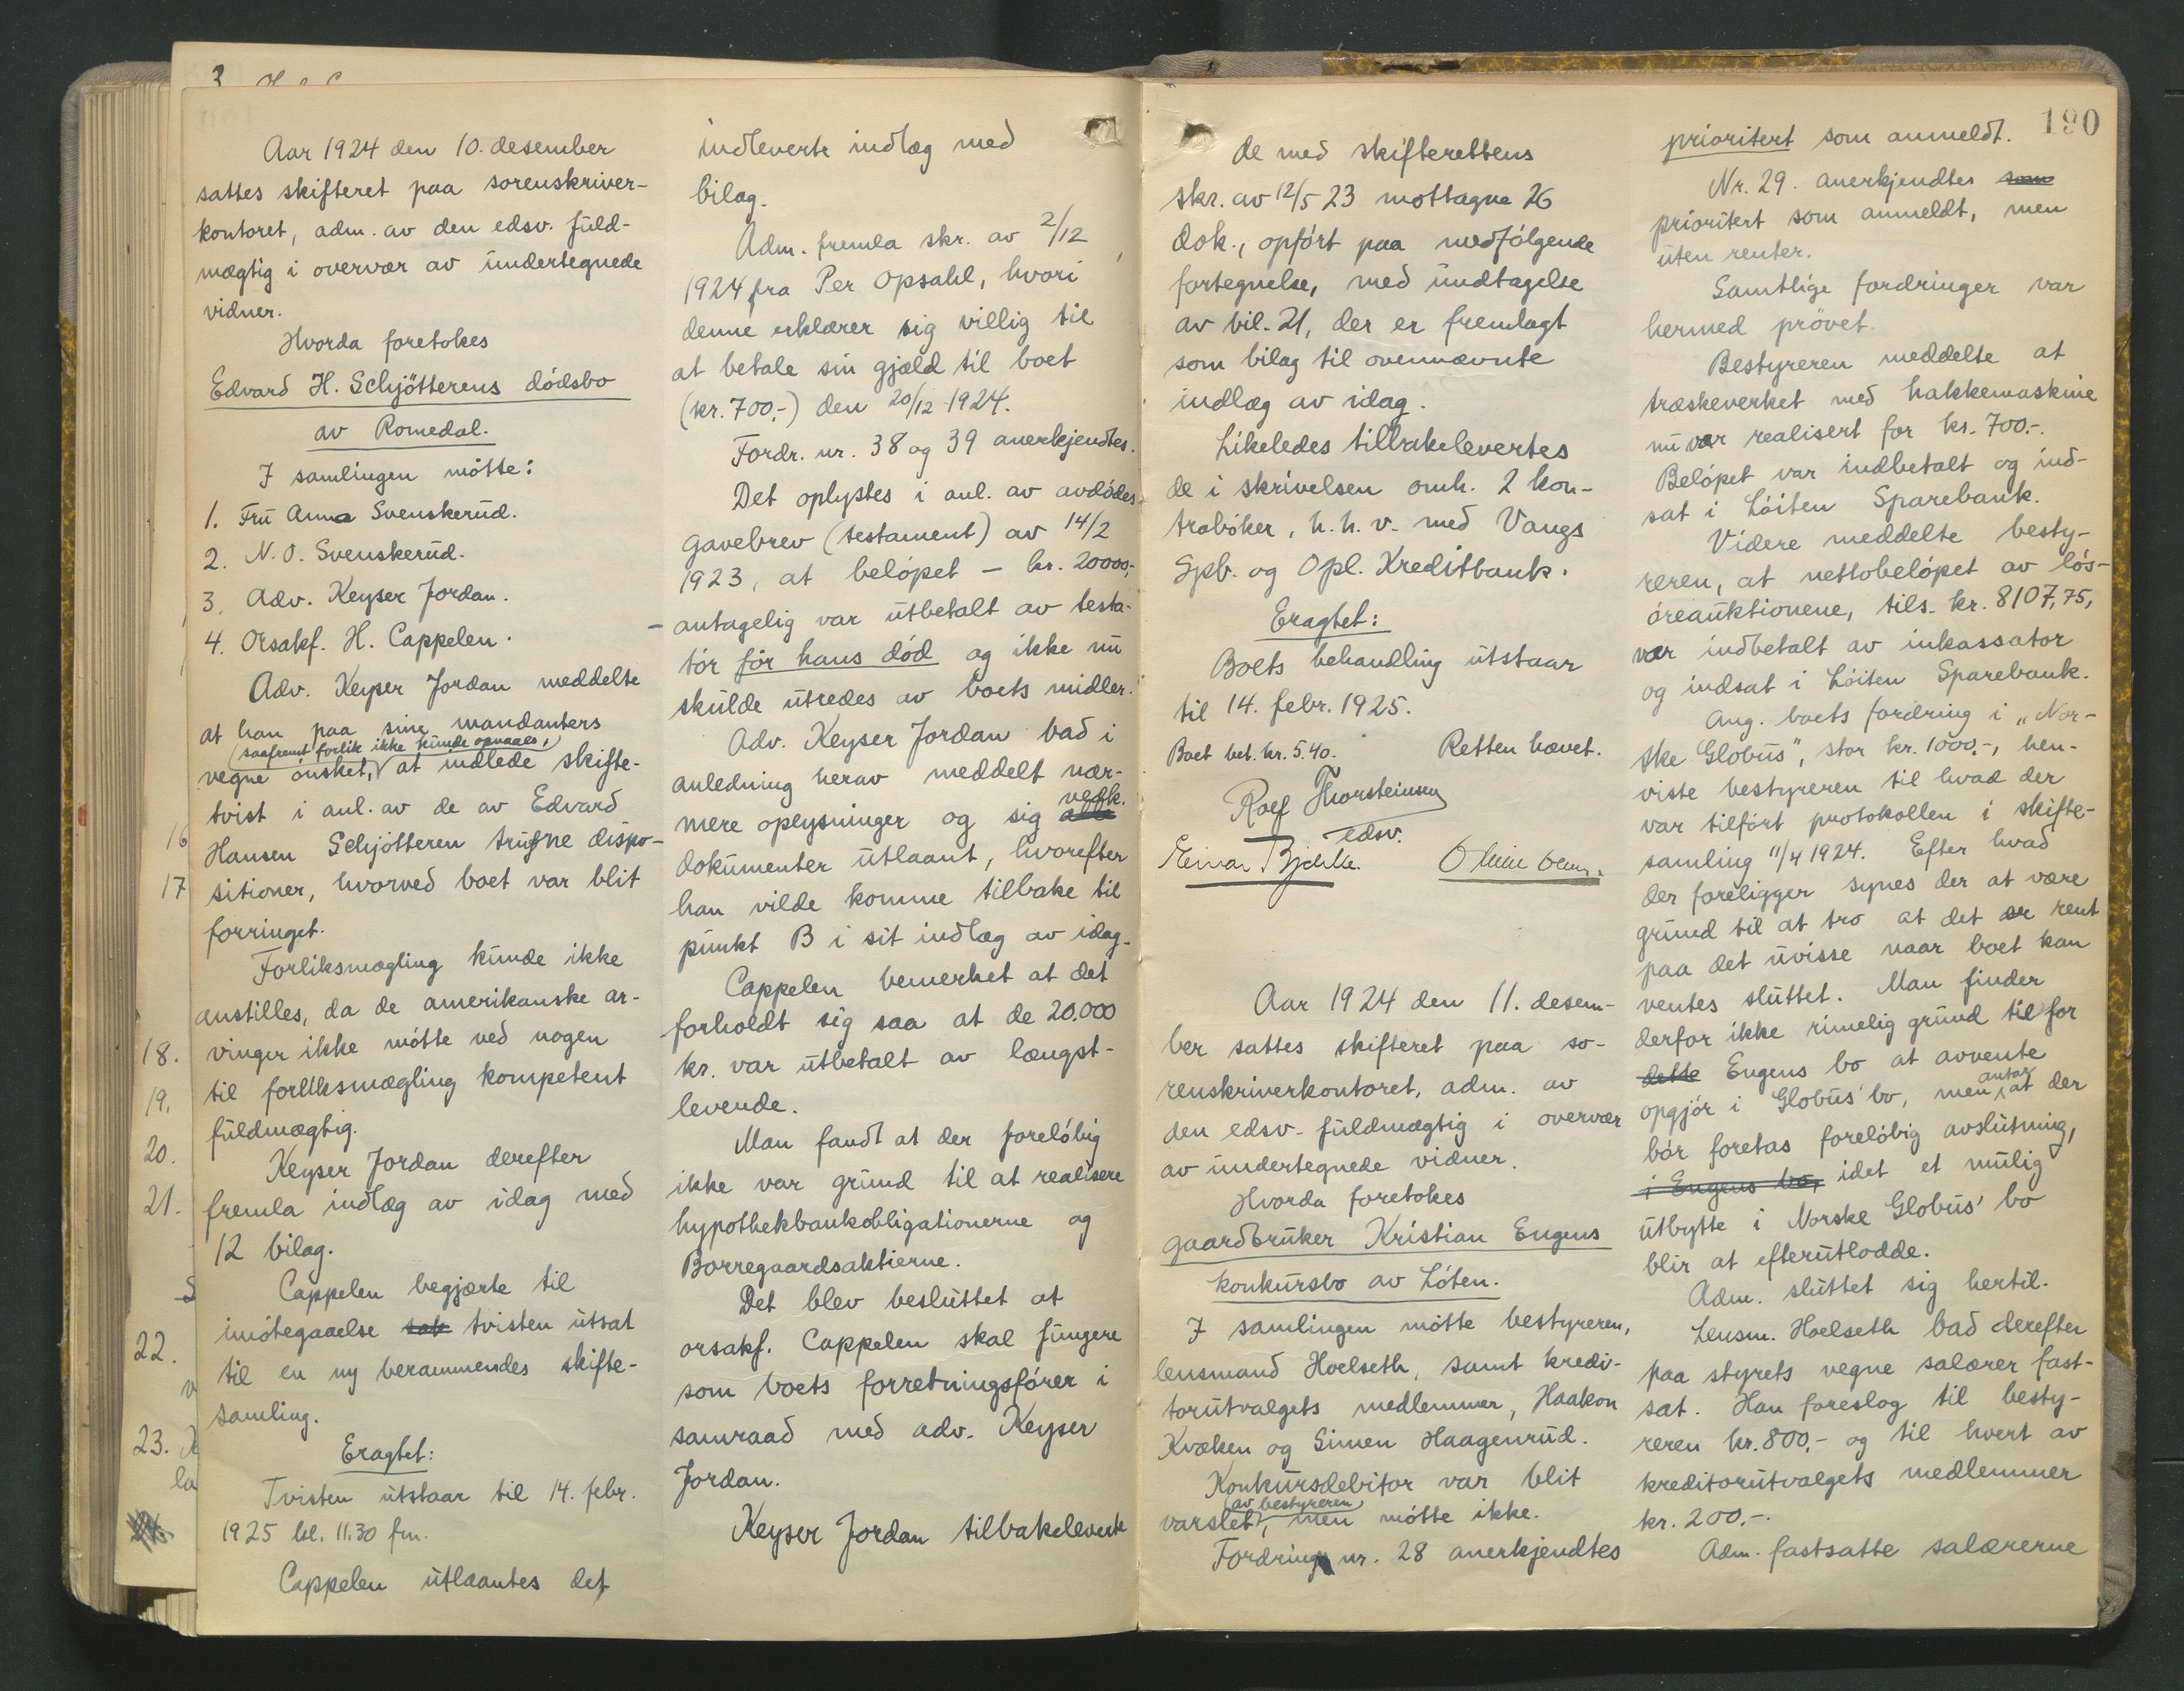 Aar 1924 den 10. desember
sattes skifteret paa sorenskriver-
kontoret, adm. av den edsv. fuld-
mægtig i overvær av undertegnede
vidner.
Hvorda foretokes
Edvard H. Schjötterens dódsbo
av Romedal.
I samlingen mótte:
1. Fru Anna Svenskerud.
2. N. O. Svenskerud.
3. Adv. Keyser Jordan.
4. Orsakf. H. Cappelen.
Adv. Keyser Jordan meddelte
at han paa sine mandanters
(saafremt forlik ikke kunde opnaaes,)
vegne ónsket, at indlede skifte-
tvist i anl. av de av Edvard
Hansen Schjótteren trufne dispo-
sitioner, hvorved boet var blit
forringet.
Forliksmægling kunde ikke
anstilles, da de amerikanske ar-
vinger ikke mótte ved nogen
til forliksmægling kompetent
fuldmægtig.
Keyser Jordan derefter
fremla indlæg av idag med
12 bilag.
Cappelen begjærte til
imótegaaelse tvisten utsat
til en ny berammendes skifte-
samling.
Eragtet:
Tvisten utstaar til 14. febr.
1925 kl. 11.30 fm.
Cappelen utlaantes det
indleverte indlæg med
bilag.
Adm. fremla skr. av 2/12
1924 fra Per Opsahl, hvori
denne erklærer sig villig til
at betale sin gjæld til boet
(kr. 700,-) den 20/12 1924.
Fordr. nr. 38 og 39 anerkjendtes.
Det oplystes i anl. av avdódes
gavebrev (testament) av 14/2
1923, at belópet - kr. 20000,-
- antagelig var utbetalt av testa-
tór fór hans dód og ikke nu
skulde utredes av boets midler.
Adv. Keyser Jordan bad i
anledning herav meddelt nær-
mere oplysninger og sig vedk.
dokumenter utlaant, hvorefter
han vilde komme tilbake til
punkt B i sit indlæg av idag.
Cappelen bemerket at det
forholdt sig saa at de 20.000
kr. var utbetalt av længst-
levende.
Man fandt at der forelóbig
ikke var grund til at realisere
hypothekbankobligationerne og
Borregaardsaktierne.
Det blev besluttet at
orsakf. Cappelen skal fungere
som boets forretningsfórer i
samraad med adv. Keyser
Jordan.
Keyser Jordan tilbakeleverte
de med skifterettens
skr. av 12/5 23 mottagne 26
dok., opfórt paa medfólgende
fortegnelse, med undtagelse
av bil. 21, der er fremlagt
som bilag til ovennævnte
indlæg av idag.
Likeledes tilbakelevertes
de i skrivelsen omh. 2 kon-
trabóker, h. h. v. med Vangs
Spb. og Opl. Kreditbank.
Eragtet:
Boets behandling utstaar
til 14. febr. 1925.
Boet bet. kr. 5.40. Retten hævet.
Rolf Thorsteinsen
edsv.
Einar Bjelke.
Aar 1924 den 11. desem-
ber sattes skifteret paa so-
renskriverkontoret, adm. av
den edsv. fuldmægtig i overvær
av undertegnede vidner.
Hvorda foretokes
gaardbruker Kristian Engens
konkursbo av Lóten.
I samlingen mótte bestyreren,
lensmand Hoelseth, samt kredi-
torutvalgets medlemmer, Haakon
Kvæken og Simen Haagenrud.
Konkursdebitor var blit
(av bestyreren)
varslet, men mótte ikke.
Fordring nr. 28 anerkjendtes
190
prioritert som anmeldt.
Nr. 29. anerkjendtes som
prioritert som anmeldt, men
uten renter.
Samtlige fordringer var
hermed prövet.
Bestyreren meddelte at
træskeverket med hakkemaskine
nu var realisert for kr. 700.-.
Belópet var indbetalt og ind-
sat i Lóiten Sparebank.
Videre meddelte besty-
reren, at nettobelópet av lós-
óreauktionene, tils. kr. 8107,75,
var indbetalt av inkassator
og indsat i Lóiten Sparebank.
Ang. boets fordring i „Nor-
ske Globus", stor kr. 1000,-, hen-
viste bestyreren til hvad der
var tilfórt protokollen i skifte-
samling 11/4 1924. Efter hvad
der foreligger synes der at være
grund til at tro at det er rent
paa det uvisse naar boet kan
ventes sluttet. Man finder
derfor ikke rimelig grund til for
dette Engens bo at avvente
opgjór i Globus' bo, men antar at der
bór foretas forelóbig avslutning,
i Engens bo, idet et mulig
utbytte i Norske Globus' bo
blir at efterutlodde.
Adm. sluttet sig hertil.
Lensm. Hoelseth bad derefter
paa styrets vegne salærer fast-
sat. Han foreslog til besty-
reren kr. 800,- og til hvert av
kreditorutvalgets medlemmer
kr. 200.-.
Adm. fastsatte salærerne
16
17
18.
19.
20.
21.
22.
23.